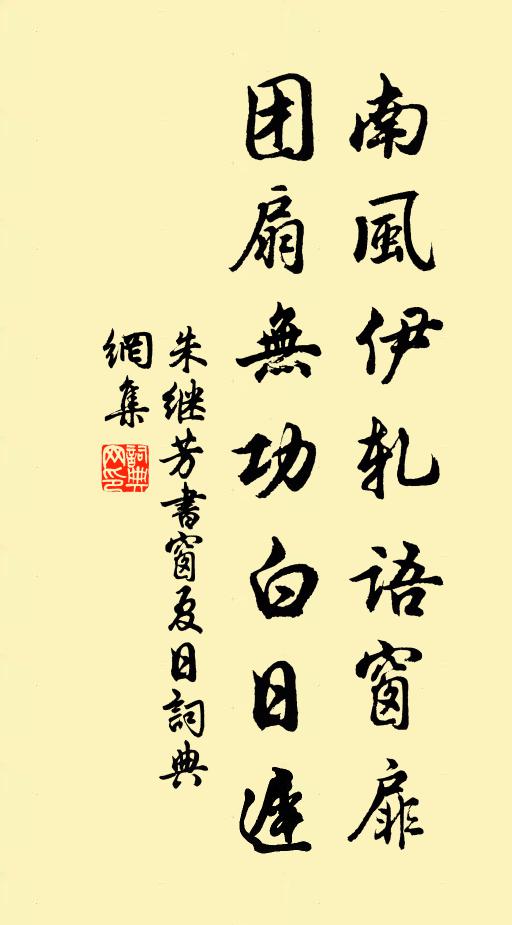 南風伊軋語窗扉
团扇無功白日遲
朱继芳書窗夏日詞典
網集
詞典网印